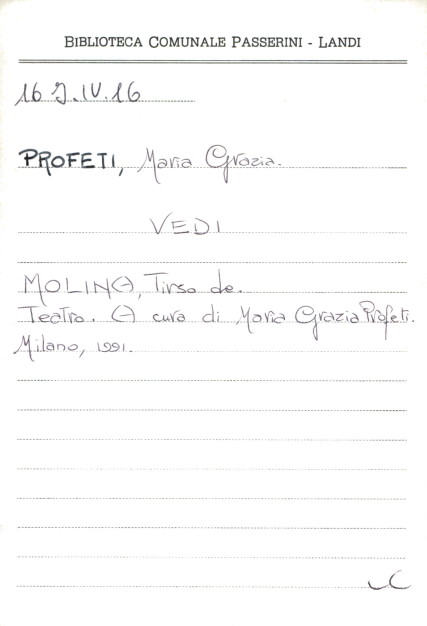 BIBLIOTECA COMUNALE PASSERINI - LANDI
16 J.IV.16
PROFETI, Maria Grazia.
VEDI
MOLINA, Tirso de.
Teatro. A cura di Maria Grazia Profeti.
Milano, 1991.